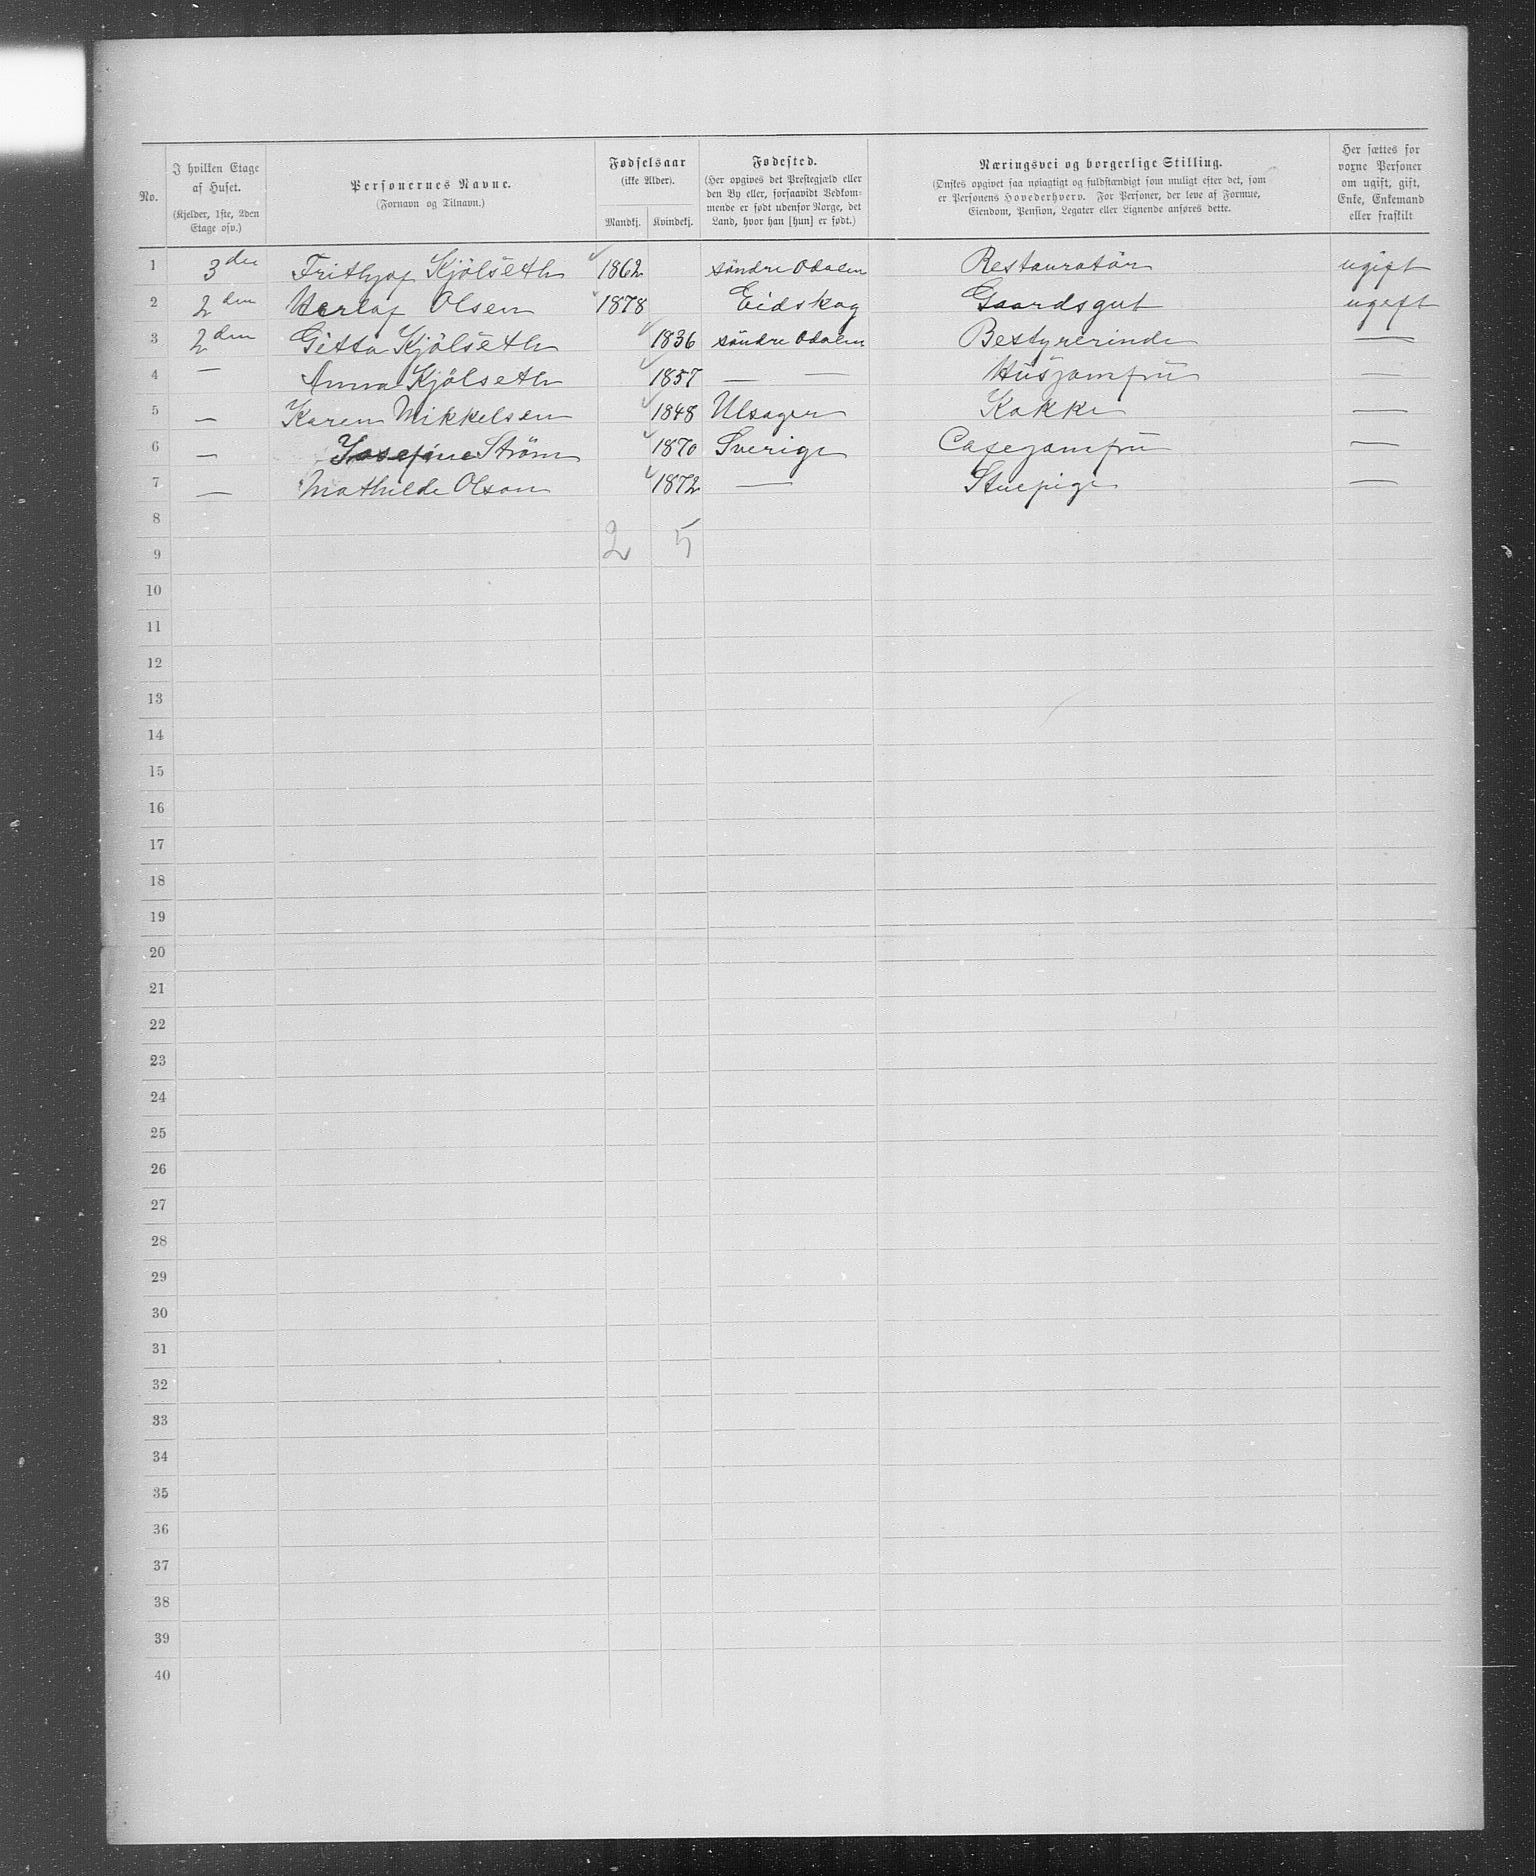 No.
I hvilken Etage af Huset.
(Kjelder, 1ste, 2den Etage osv.)
Personernes Navne.
(Fornavn og Tilnavn.)
Fødselsaar
(ikke Alder).
Mandkj. Kvindekj.
Fødested.
(Her opgives det Prestegjæld eller den By eller, forsaavidt Vedkommende er født udenfor Norge, det Land, hvor han [hun] er født.)
Næringsvei og borgerlige Stilling.
(Ønskes opgivet saa nøiagtigt og fuldstændigt som muligt efter det, som er Personens Hovederhverv. For Personer, der leve af Formue, Eiendom, Pension, Legater eller Lignende anføres dette.
Her sættes for voxne Personer om ugift, gift, Enke, Enkemand eller fraskilt
1 3die Frithjof Kjölseth 1862 söndre Odalen Restauratör ugift
2 2den Olsen 1878 Eidskog Gaardsgut ugift
3 2den Gitta Kjölseth 1836 söndre Odalen Bestyrerinde —
4 — Anna Kjölseth 1857 — — Husjomfru —
5 — Karen Mikkelsen 1848 Ulsager Kokke —
6 — Josefine Ström 1870 Sverige Cafejomfru —
7 — Mathilde Olson 1872 — Stuepige —
8
2 5
9
10
11
12
13
14
15
16
17
18
19
20
21
22
23
24
25
26
27
28
29
30
31
32
33
34
35
36
37
38
39
40